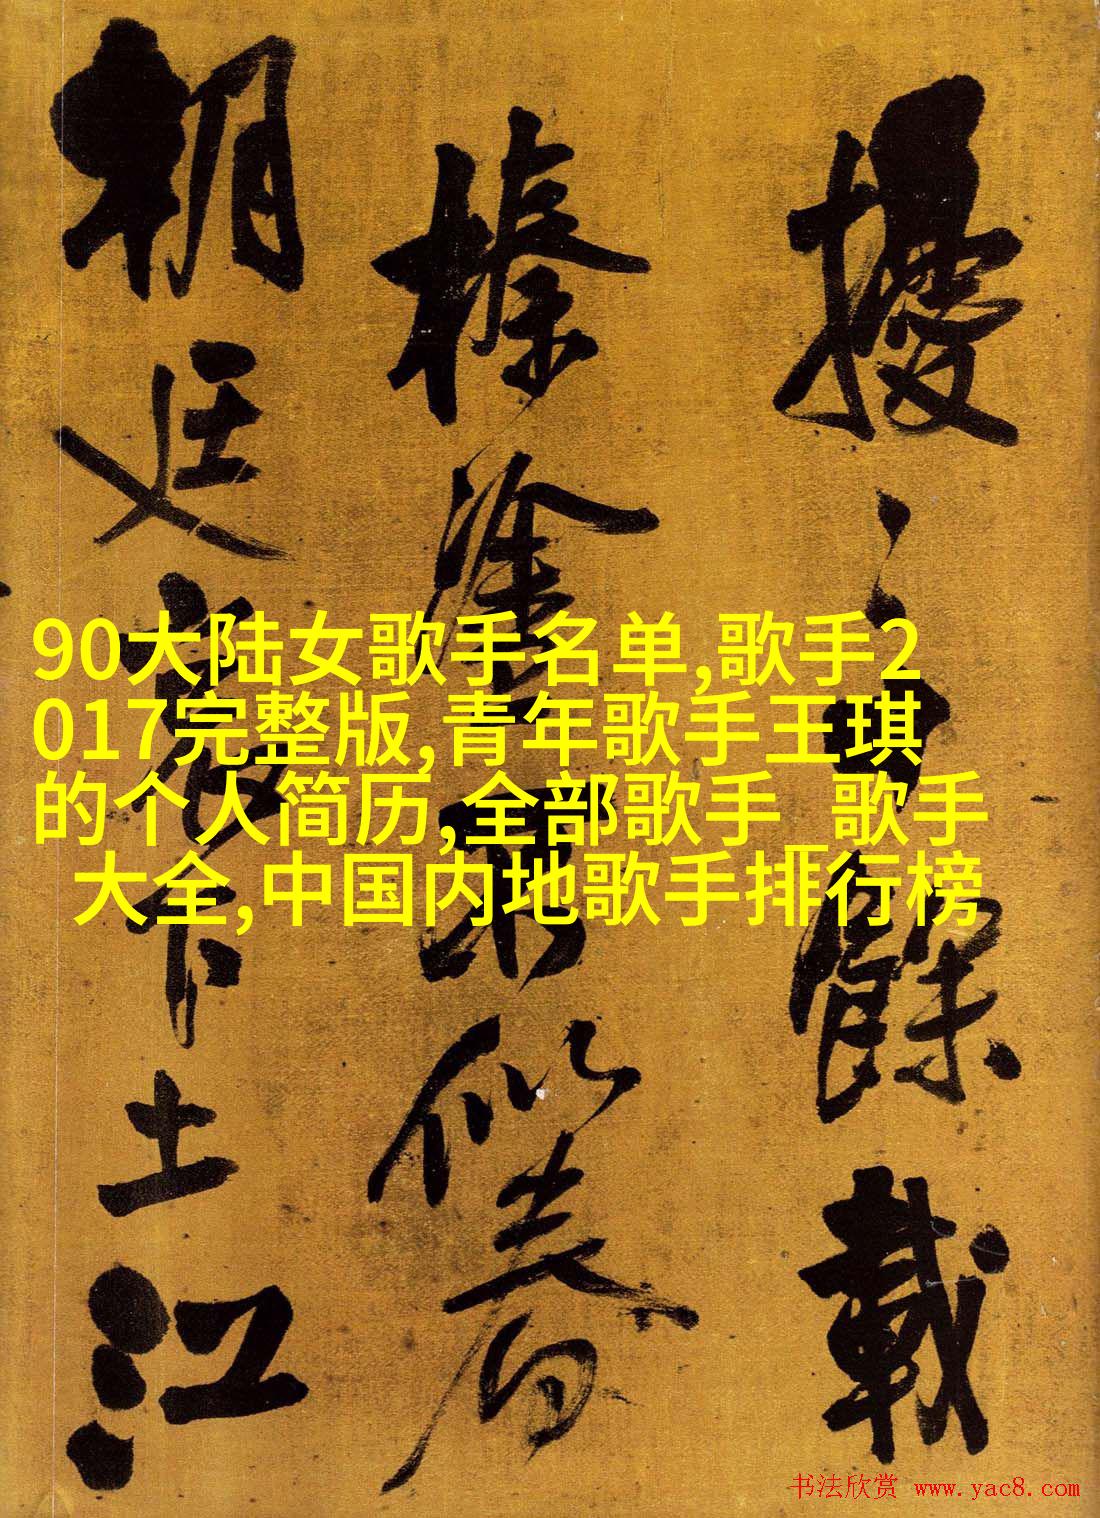 擾餘載
榛塗
朝廷土江
90大陆女歌手名单,歌手2
017完整版,青年歌手王琪
的个人简历,全部歌手 歌手
大全,中国内地歌手排行榜
书法欣赏 www.yac8.com